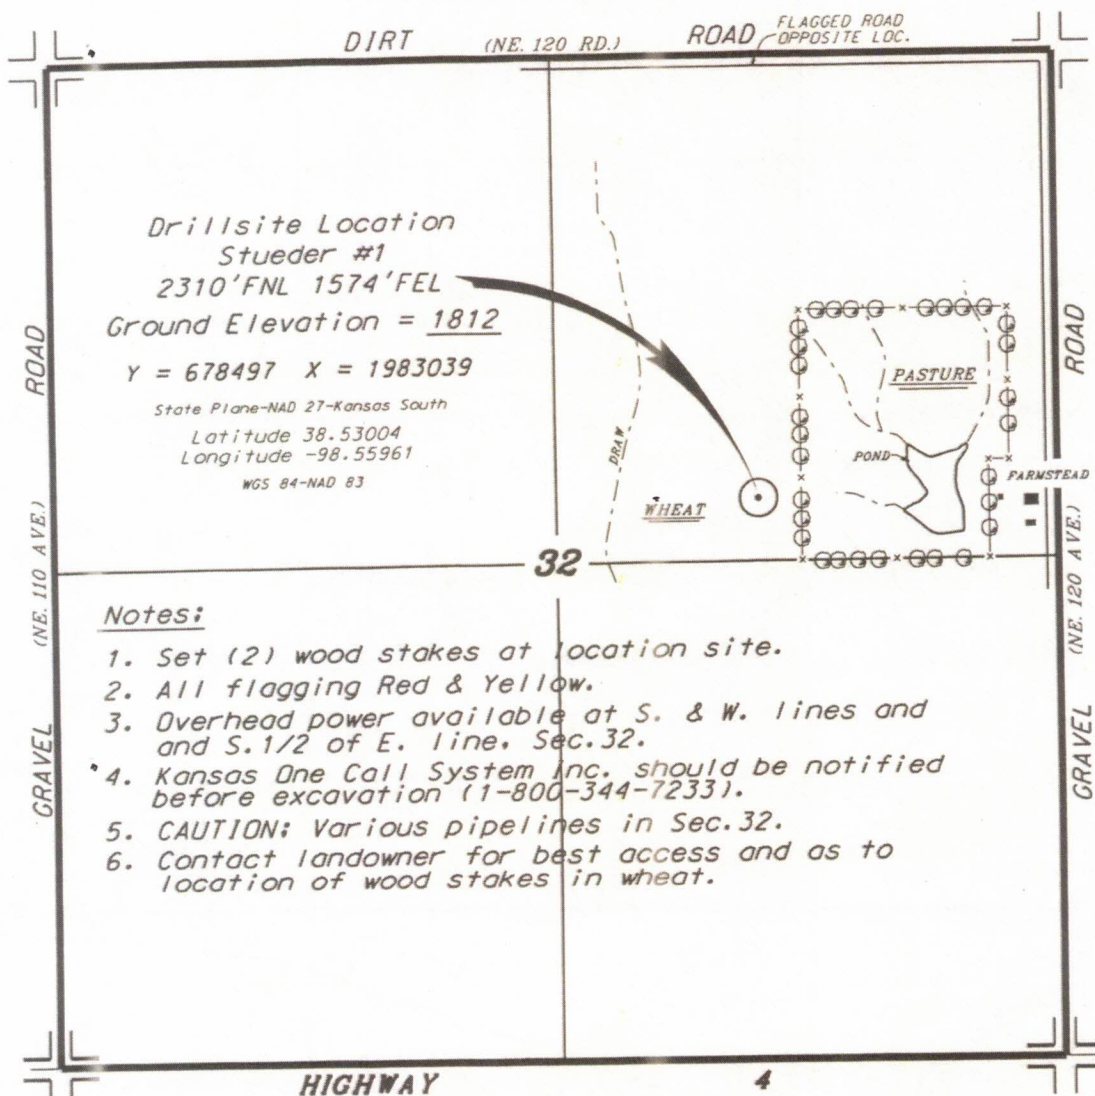 DIRT (NE. 120 RD.) ROAD FLAGGED ROAD
OPPOSITE LOC.
Drillsite Location
Stueder #1
2310'FNL 1574'FEL
Ground Elevation = 1812
Y = 678497 X = 1983039
State Plane-NAD 27-Kansas South
Latitude 38.53004
Longitude -98.55961
WGS 84-NAD 83
GRAVEL (NE. 110 AVE.) ROAD
DRAW
WHEAT
PASTURE
POND
FARMSTEAD
GRAVEL (NE. 120 AVE.) ROAD
32
Notes:
1. Set (2) wood stakes at location site.
2. All flagging Red & Yellow.
3. Overhead power available at S. & W. lines and
and S.1/2 of E. line. Sec.32.
4. Kansas One Call System Inc. should be notified
before excavation (1-800-344-7233).
5. CAUTION: Various pipelines in Sec.32.
6. Contact landowner for best access and as to
location of wood stakes in wheat.
HIGHWAY 4